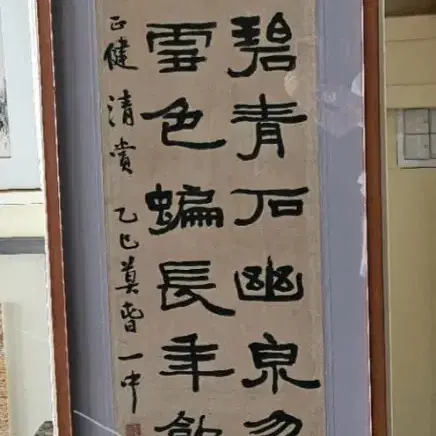 碧青石幽泉
雲色蝙長年
正健 清賞 乙巳莫旾 一中